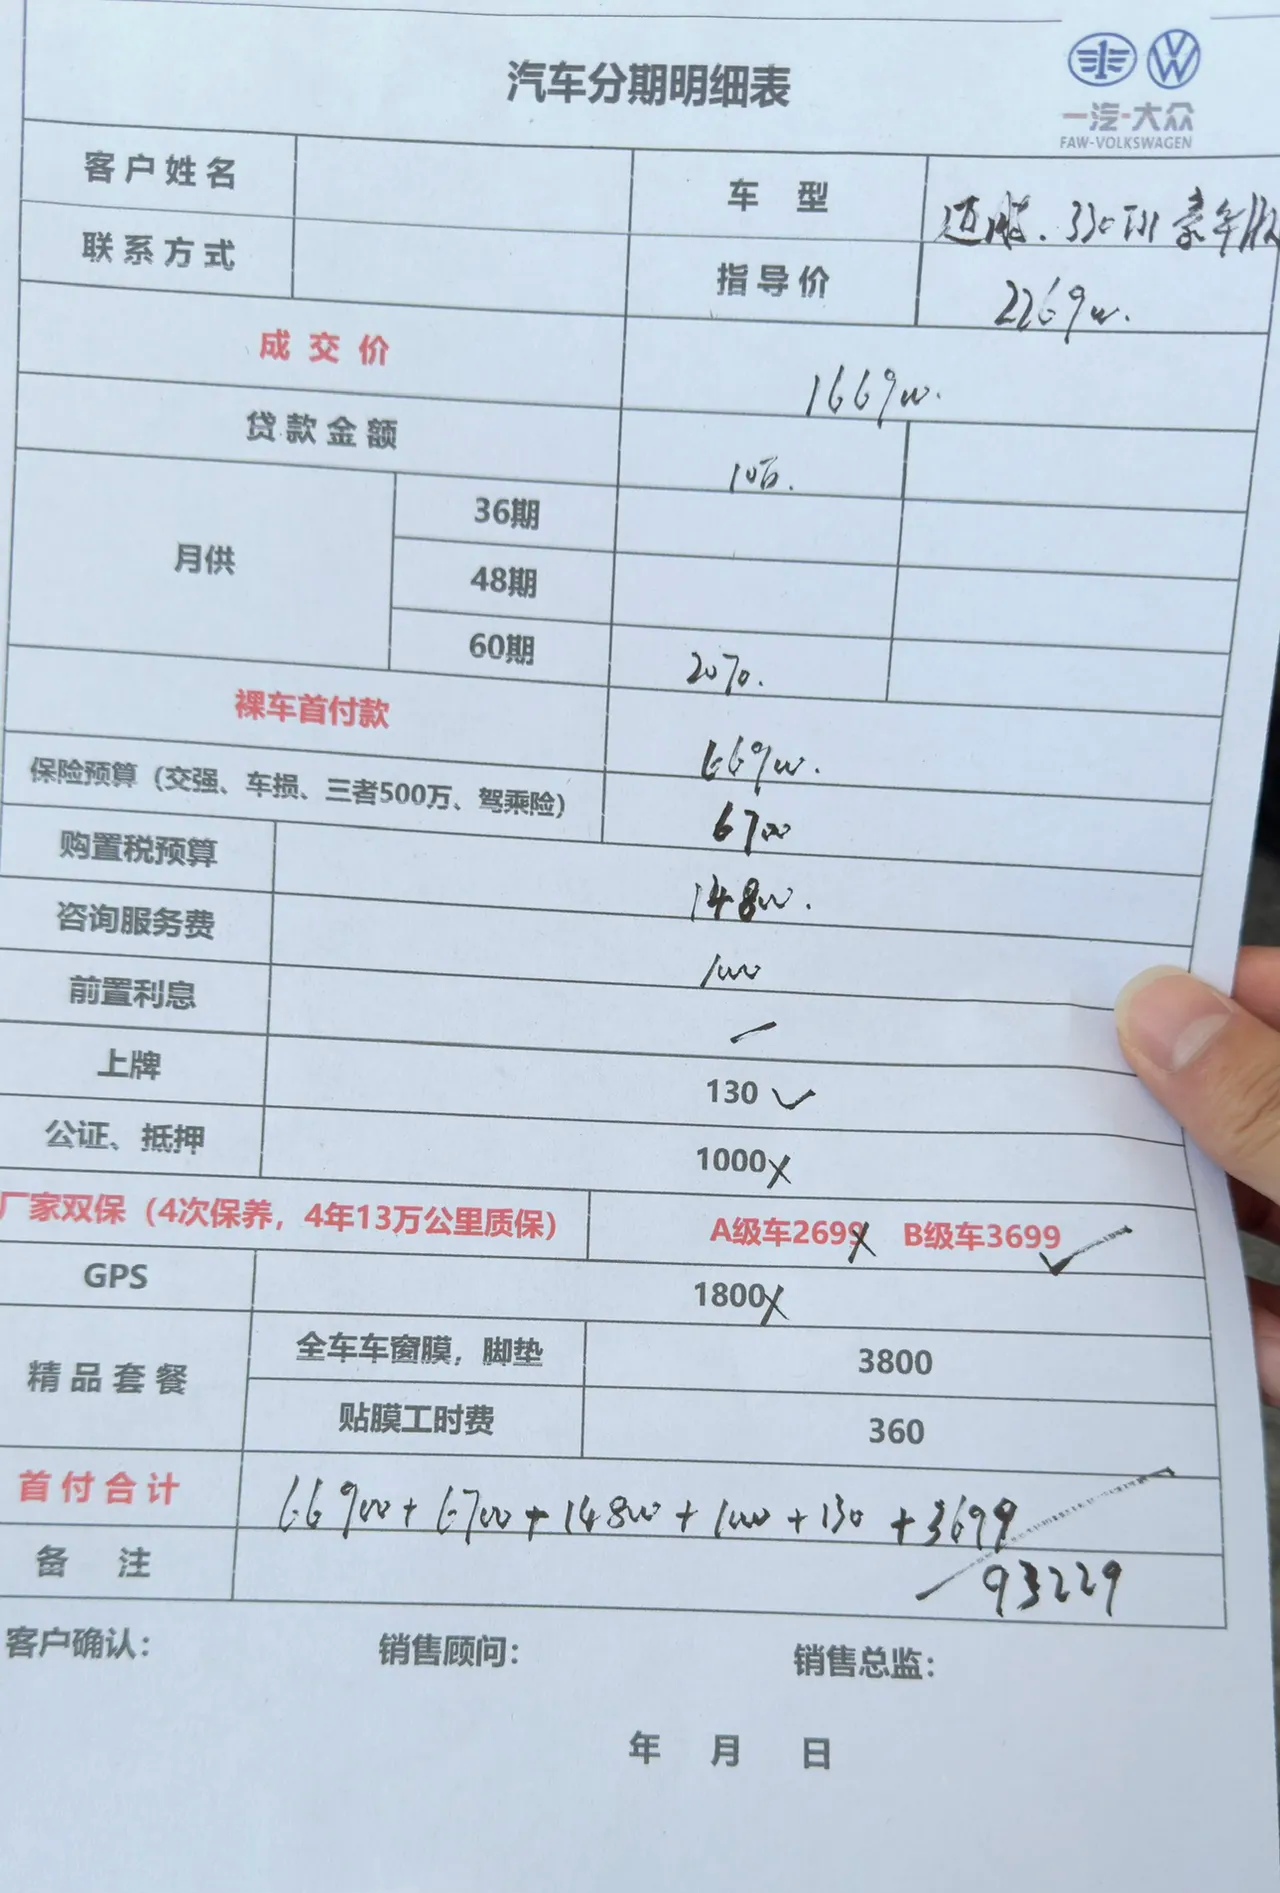 汽车分期明细表
一汽-大众
FAW-VOLKSWAGEN
客户姓名
车 型 迈腾. 330TSI 豪华版
联系方式
指导价 226900.
成 交 价 166900.
贷款金额 10万.
月供
36期
48期
60期 2070.
裸车首付款 66900.
保险预算（交强、车损、三者500万、驾乘险） 6700
购置税预算 14800.
咨询服务费 1000
前置利息 —
上牌 130 ✓
公证、抵押 1000 ✗
厂家双保（4次保养，4年13万公里质保） A级车2699 ✗ B级车3699 ✓
GPS 1800 ✗
精品套餐
全车车窗膜，脚垫 3800
贴膜工时费 360
首付合计 66900+6700+14800+1000+130+3699
备 注 93229
客户确认： 销售顾问： 销售总监：
年 月 日